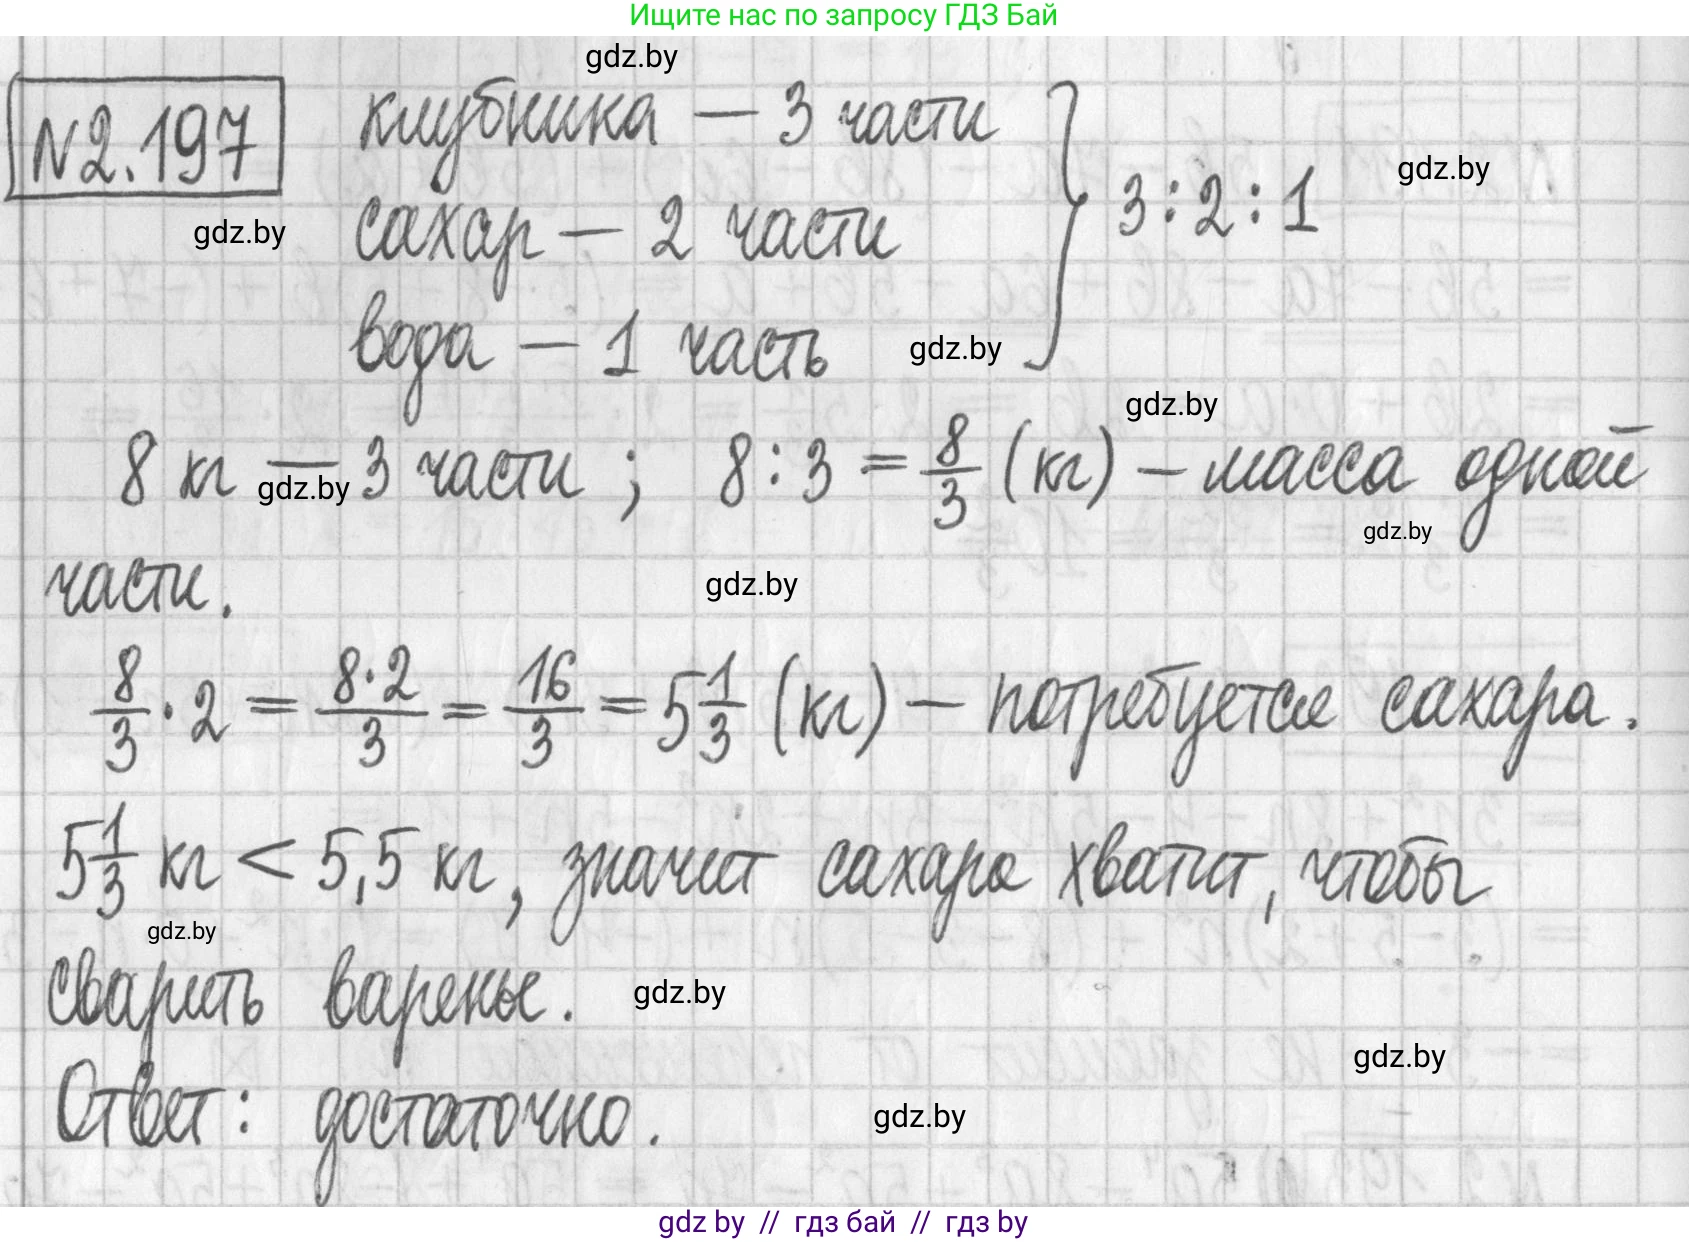 Ищите нас по запросу ГДЗ Бай
gdz.by
N2.197 клубника — 3 части
gdz.by
сахар — 2 части } 3:2:1
gdz.by
вода — 1 часть
gdz.by
gdz.by
8 кг — 3 части ; 8:3 = 8/3 (кг) — масса одной
gdz.by
gdz.by
части.
gdz.by
8/3 · 2 = 8·2/3 = 16/3 = 5 1/3 (кг) — потребуется сахара.
5 1/3 кг < 5,5 кг, значит сахара хватит, чтобы
gdz.by
сварить варенье.
gdz.by
gdz.by
Ответ: достаточно.
gdz.by
gdz by // гдз бай // гдз by